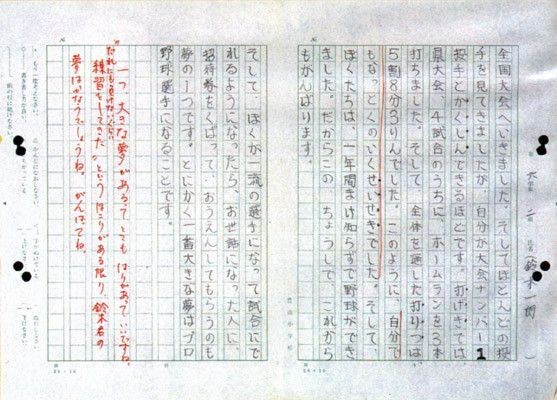 六年 二 氏名(鈴木一朗)
全国大会へいきました。そしてほとんどの投
手を見てきましたが、自分が大会ナンバー1
投手とかくしんできるほどです。打げきでは、
県大会、4試合のうちに、ホームランを3本
打ちました。そして、全体を通した打りつは
5割8分3りんでした。このように、自分で
もなっとくのいくせいせきでした。そして、
ぼくたちは、一年間まけ知らずで野球ができ
ました。だからこの、ちょうしで、これから
もがんばります。
そして、ぼくが一流の選手になって試合にで
れるようになったら、お世話になった人に、
招待券をくばって、おうえんしてもらうのも
夢の1つです。とにかく一番大きな夢はプロ
野球選手になることです。
一つ、大きな夢があるってとてもはりがあっていいですね。
"だれにも負けないくらい
練習をしてきた"というほこりがある限り、鈴木君の
夢はかなうでしょうね。がんばってね。